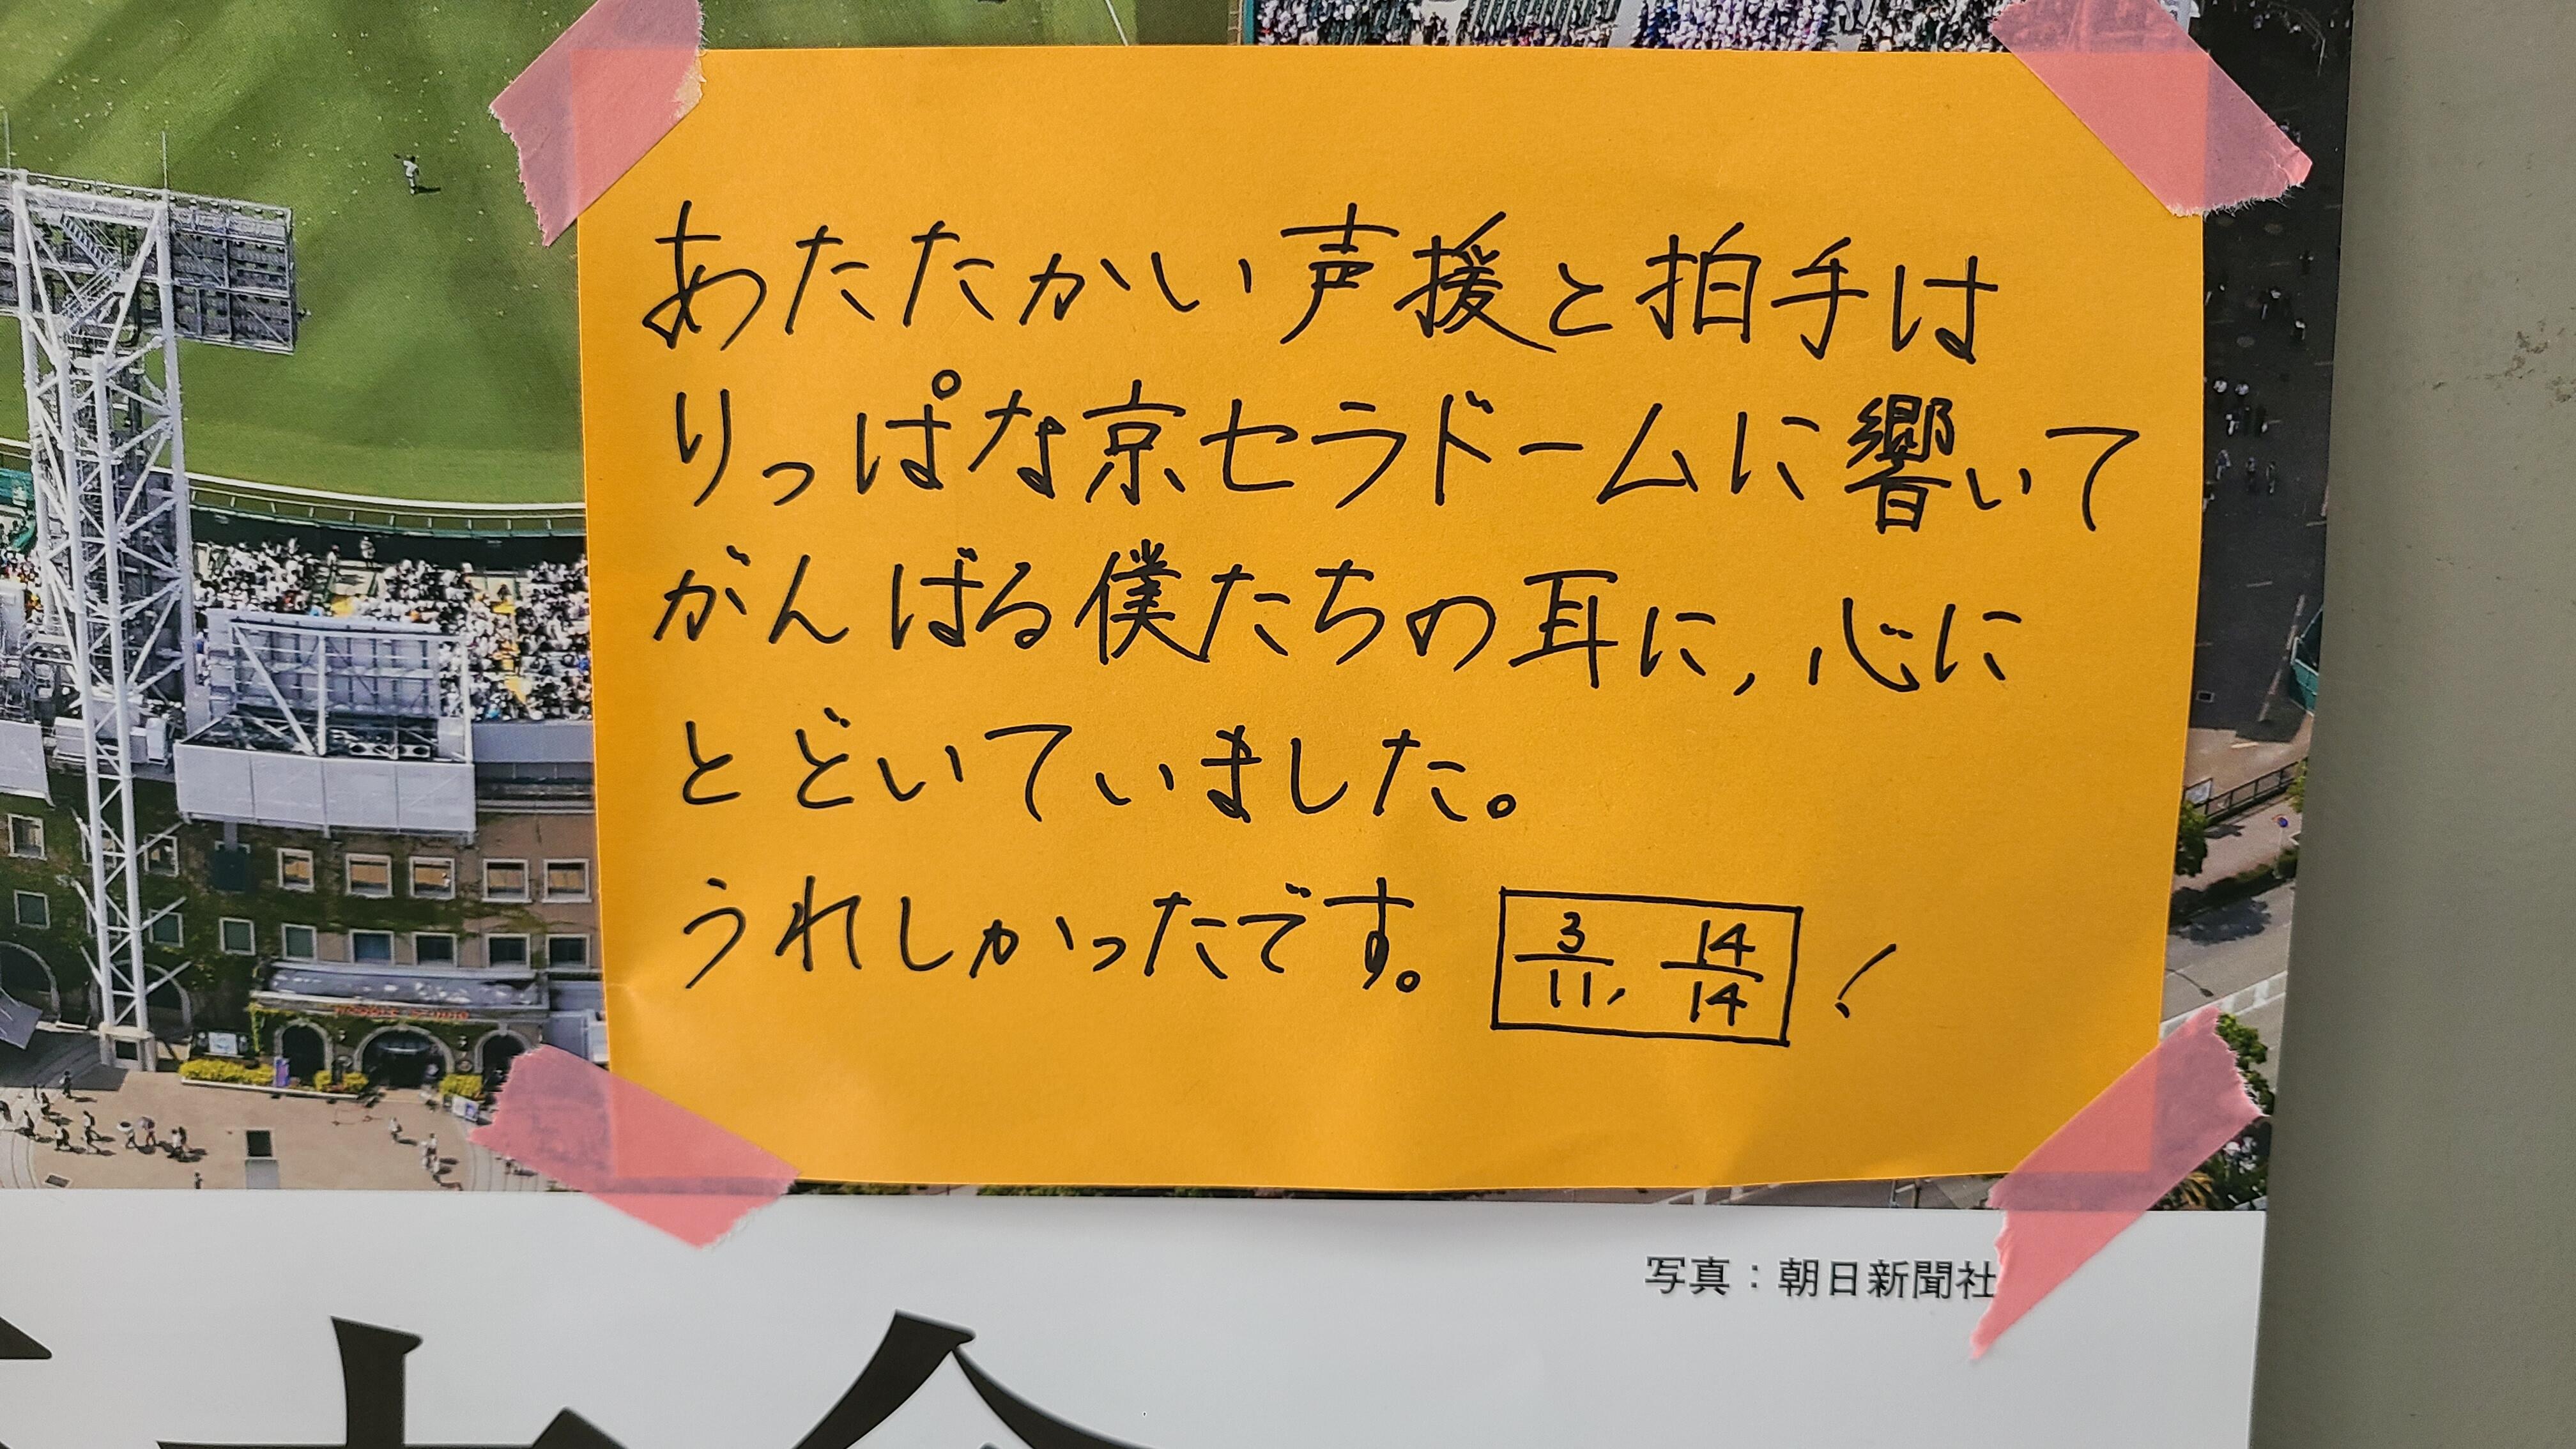 あたたかい声援と拍手は
りっぱな京セラドームに響いて
がんばる僕たちの耳に,心に
とどいていました。
うれしかったです。 3/11, 14/14 !
写真：朝日新聞社